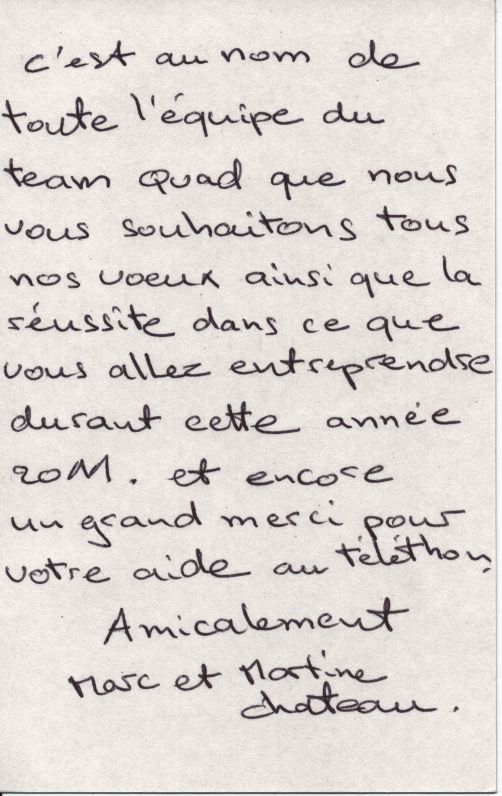 c'est au nom de
toute l'équipe du
team Quad que nous
vous souhaitons tous
nos voeux ainsi que la
réussite dans ce que
vous allez entreprendre
durant cette année
2011. et encore
un grand merci pour
votre aide au téléthon,
Amicalement
Marc et Martine
chateau.